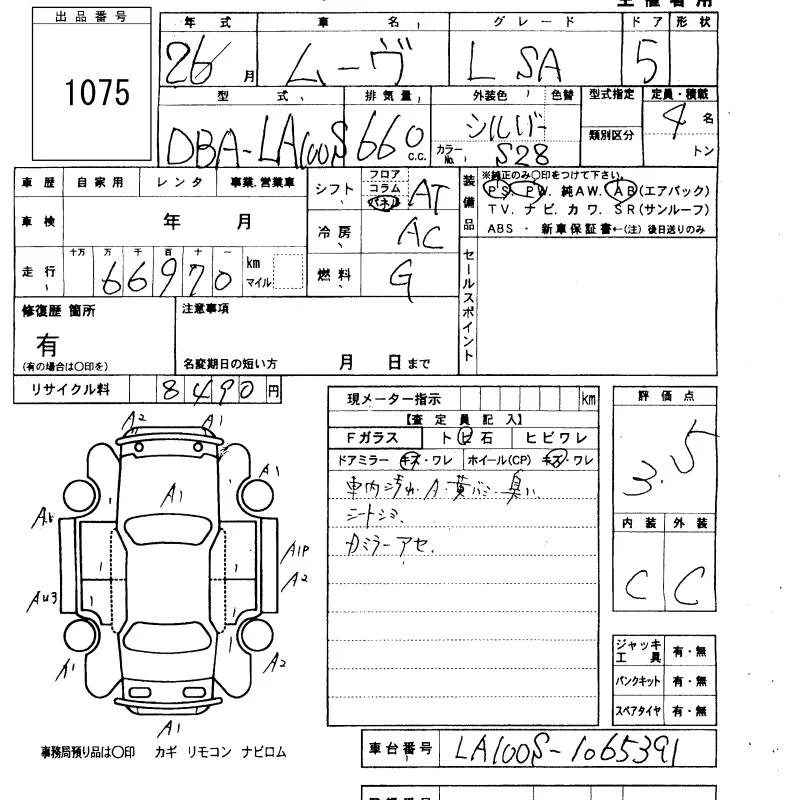 出品番号
1075
年式 車名 グレード ドア 形状
26 月 ムーヴ L SA 5
型式 排気量 外装色 色替 型式指定 定員・積載
類別区分
DBA-LA100S 660 c.c. シルバー カラーNo. S28 4 名 トン
車歴 自家用 レンタ 事業.営業車
車検 年 月
走行 十万 万 千 百 十 一
66970 km マイル
シフト フロア コラム パネル AT
冷房 AC
燃料 G
装備品
※純正のみ○印をつけて下さい。
PS. PW. 純AW. AB(エアバック)
TV. ナビ. カワ. SR(サンルーフ)
ABS ・ 新車保証書←(注) 後日送りのみ
セールスポイント
修復歴 箇所
有
(有の場合は○印を)
注意事項
名変期日の短い方 月 日まで
リサイクル料 8490 円
現メーター指示 km
【査定員記入】
Fガラス トビ石 ヒビワレ
ドアミラー キズ・ワレ ホイール(CP) キズ・ワレ
車内汚れ・A・黄バミ・臭い
シートシミ
ドミラーアセ.
評価点
3.5
内装 外装
C C
ジャッキ工具 有・無
パンクキット 有・無
スペアタイヤ 有・無
A2 A1
A1
A1
A1P
A2
AU3
A1 A2
A1
事務局預り品は○印 カギ リモコン ナビロム
車台番号 LA100S-1065391